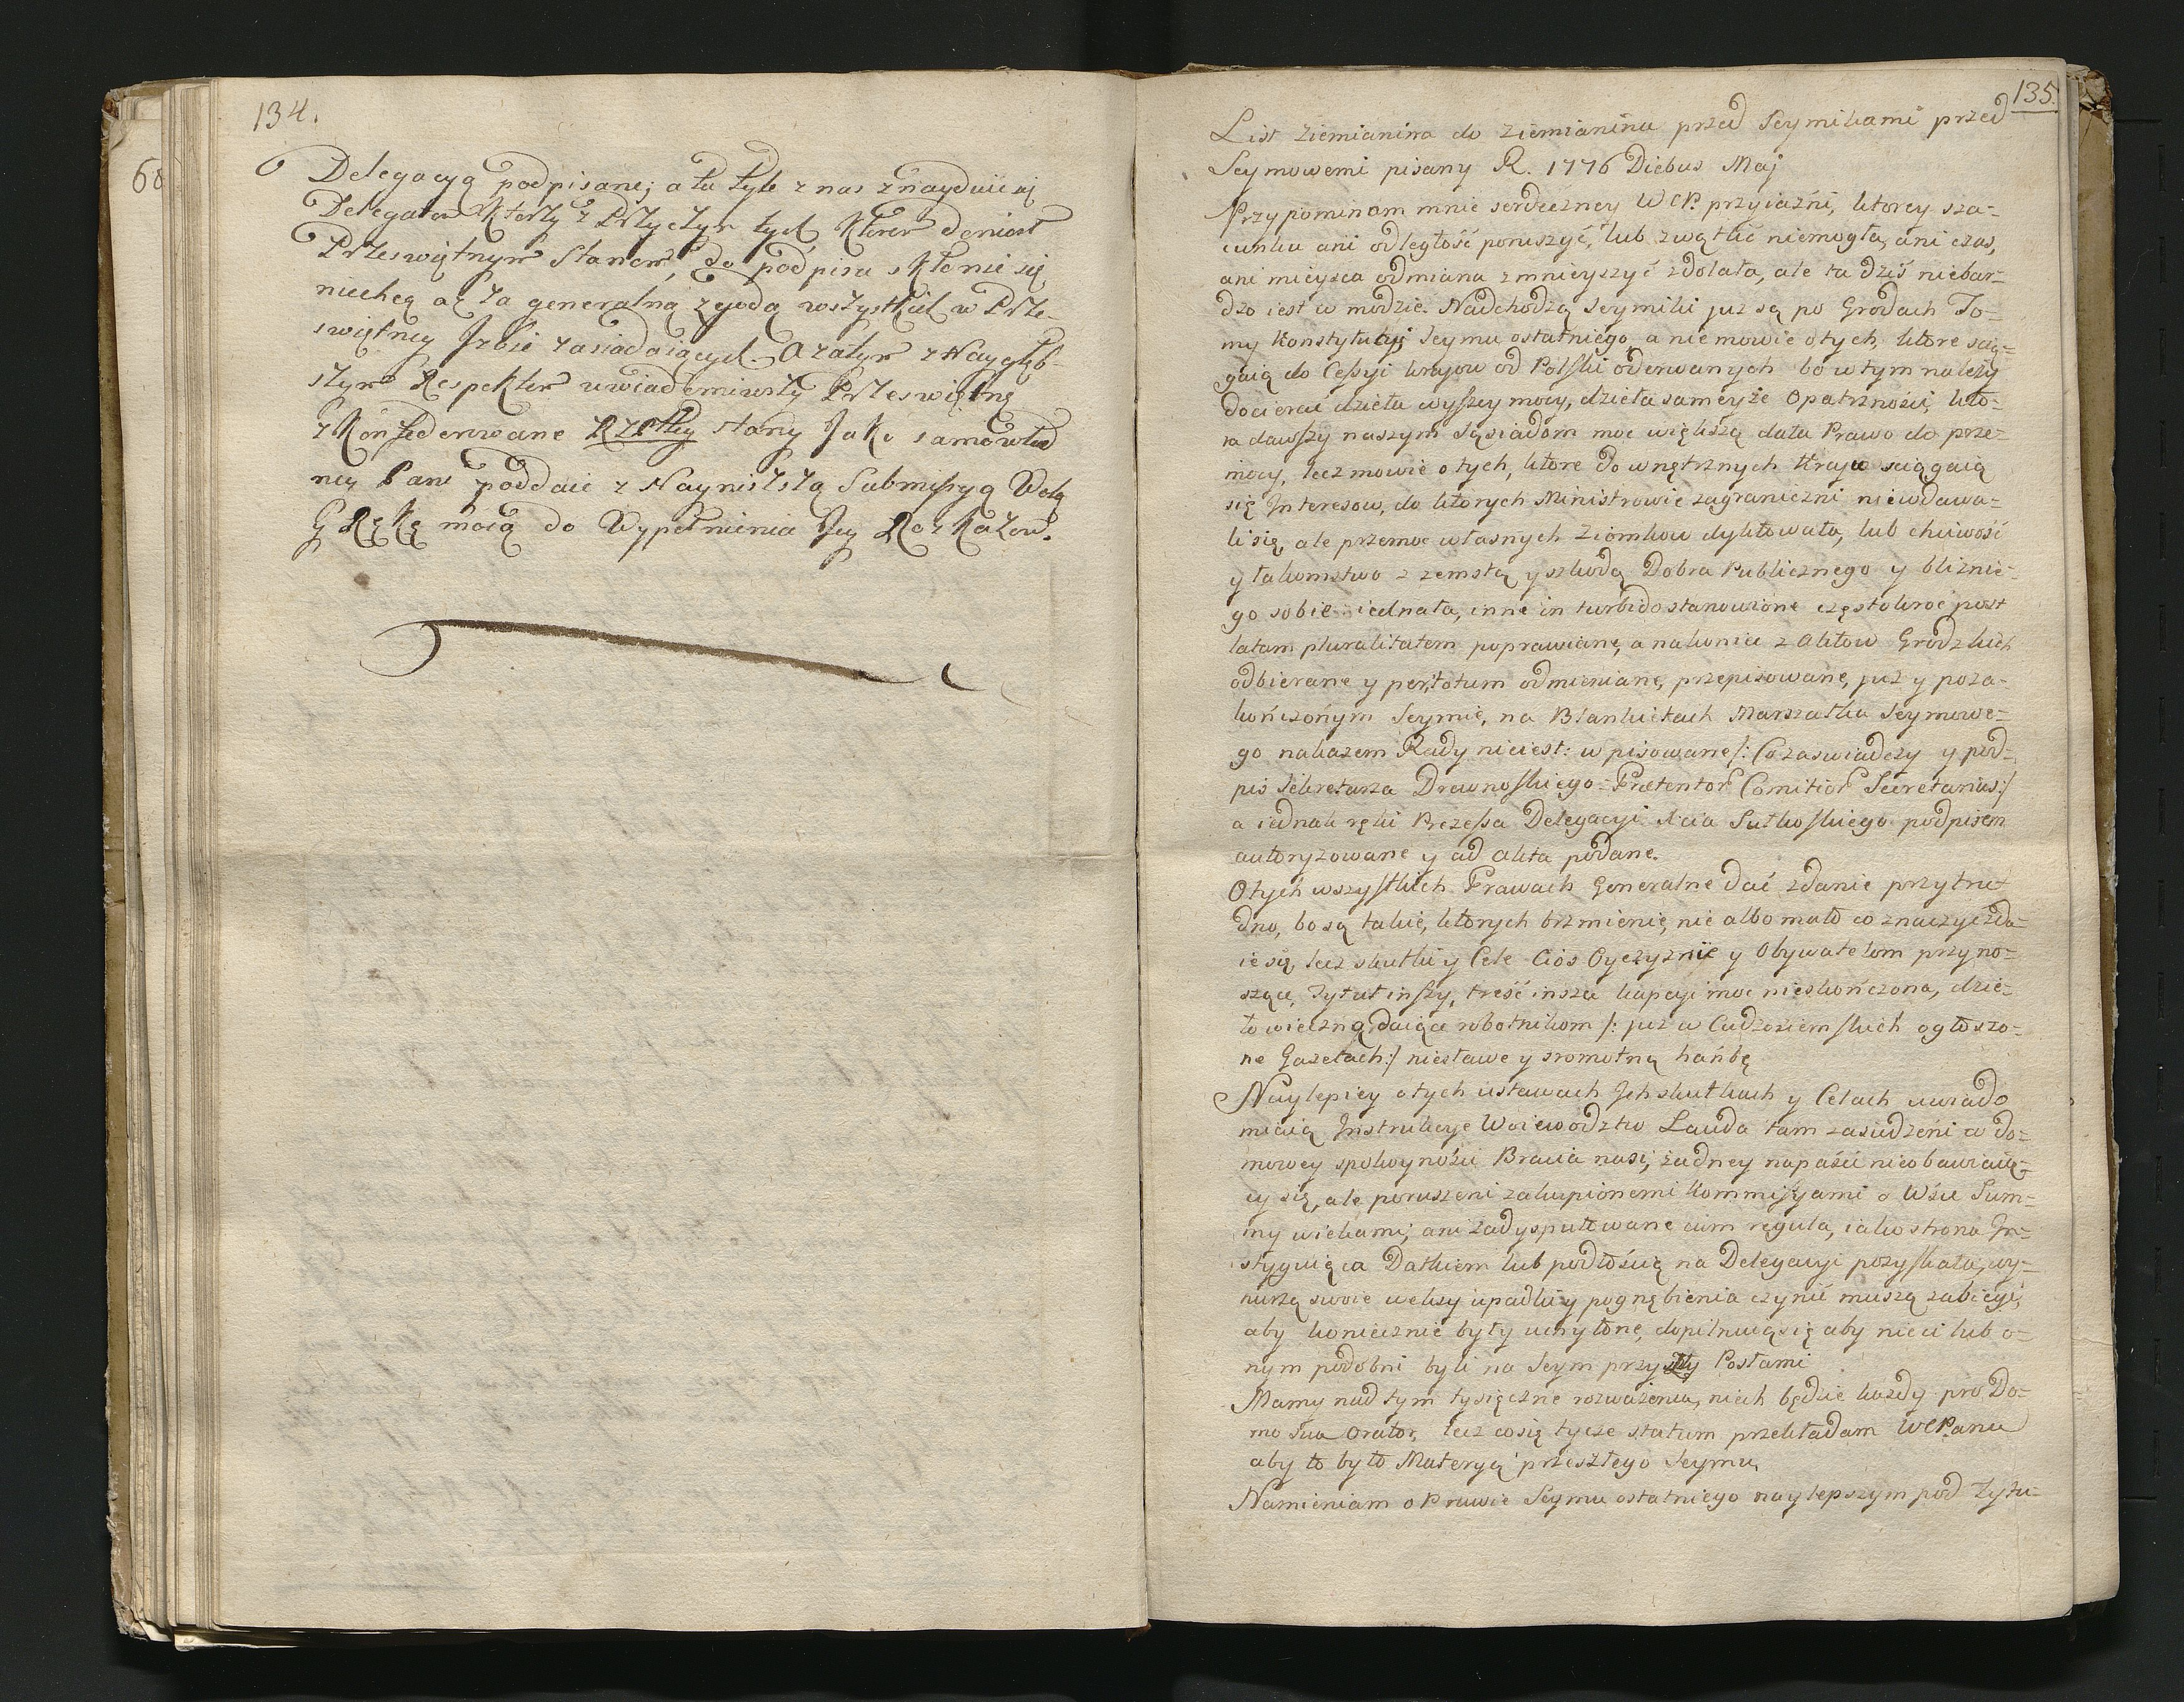 134.
68
Delegacyą podpisane; a tu tyle z nas znayduie się
Delegatow Ktorzy z Przyczyn tych, Ktore doniosł
Przeświętnym Stanom, do podpisu skłonić się
niechcą aż za generalną zgodą wszystkich w Prze-
świętney Izbie zasiadaiących. O zatym z Naygłęb-
szym Respektem uwiadomiwszy Przeświętne
z Konfederowane Rzpltey stany Jako samowład
ney Pani poddaię z Nayniższą Submissyą Wolą
y Rękę moią do Wypełnienia Jey Rozkazow.
135.
List ziemianina do ziemianina przed Seymikami przed
Seymowemi pisany R. 1776 Diebus Maj
Przypominam mnie serdeczney WCP. przyiaźni, ktorey sza-
cunku ani odległość poruszyć, lub zwątlić niemogła, ani czas,
ani mieysca odmiana zmnieyszyć zdołała, ale ta dziś niebar-
dzo iest w modzie. Nadchodzą Seymiki już są po Grodach To-
my Konstytucyi Seymu ostatniego, a nie mowię o tych, ktore scią-
gaią do Cessyi kraiow od Polski oderwanych bo w tym należy
docierać dzieła wyższey mocy, dzieła sameyże Opatrzności, kto-
ra dawszy naszym Sąsiadom moc większą dała Prawo do prze-
mocy, lecz mowię o tych, ktore do wnętrznych Kraju sciągaią
się Interesow, do ktorych Ministrowie zagraniczni niewdawa-
li się, ale przemoc własnych Ziomkow dyktowała, lub chciwość
y łakomstwo z zemstą y szkodą Dobra Publicznego y bliźnie-
go sobie iednała, inne in turbido stanowione częstokroć post
latam pluralitatem poprawiane, a nakoniec z Aktow Grodzkich
odbierane y per totum odmieniane, przepisowane, już y po za-
kończonym Seymie, na Blankietach Marszałka Seymowe-
go nakazem Rady nieiest: wpisowane /: Co zaswiadczy y pod-
pis Sekretarza Drewnoskiego Prætentor Comitior Secretarius :/
a iednak ręki Prezessa Delegacyi Xcia Sułkoskiego podpisem
autoryzowane y ad Akta podane.
O tych wszystkich Prawach Generalne dać zdanie przytru-
dno, bo są takie, ktorych brzmienie, nic albo mało co znaczyć zda-
ie się, lecz skutki y Cele Cios Oyczyznie y Obywatelom przyno-
szące, Tytuł inszy, treść insza kupcyi moc nieskończona, dzie-
ło wieczną daiące robotnikom /: już w Cudzoziemskich ogłoszo-
ne Gazetach :/ niesławę y sromotną hańbę
Naylepiey o tych ustawach Ich skutkach y Celach uwiado
mieią Instrukcye Woiewodztw Lauda tam zasiedzeni w do-
mowey spokoyności Bracia nasi, żadney napaści nieobawiaią-
cy się, ale poruszeni zakupionemi Kommissyami o Wsie Sum-
my wiekami, ani zadysputowane cum regula, iako strona In-
stygnięca Datkiem lub podłością na Delegacyi pozyskała, wy-
nurzą swoie uciski upadki y pognębienia czynić muszą zabiegi,
aby koniecznie były uchylone, dopilnuią się aby nie ci lub o-
nym podobni byli na Seym przyszły Posłami
Mamy nad tym tysięczne rozważenia, niech będzie każdy pro Do-
mo Sua Orator, lecz co się tycze statum przekładam WCPanu
aby to było Materyą przeszłego Seymu,
Namieniam o Prawie Seymu ostatniego naylepszym pod Tytu-